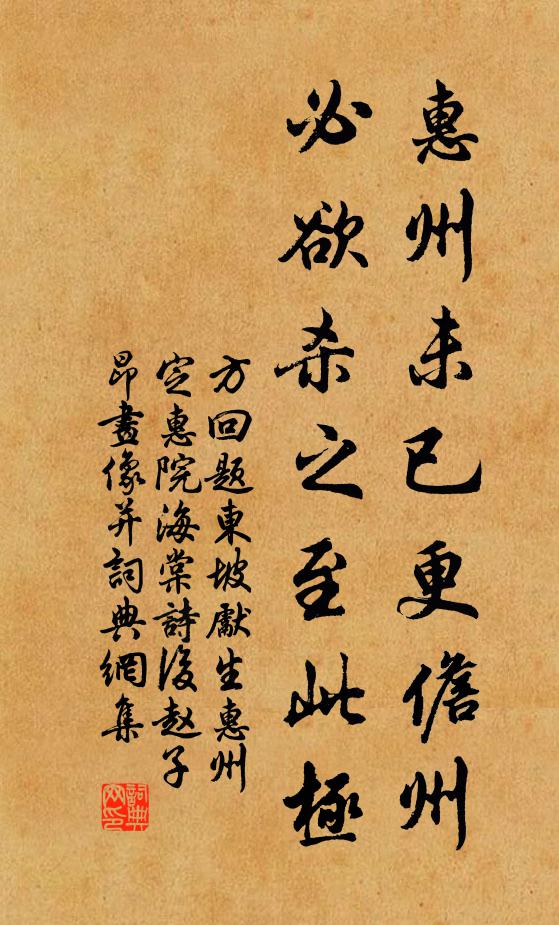 惠州未已更儋州
必欲杀之至此極
方回題東坡獻生惠州
定惠院海棠詩後赵子
昂畫像并詞典網集
詞典網印